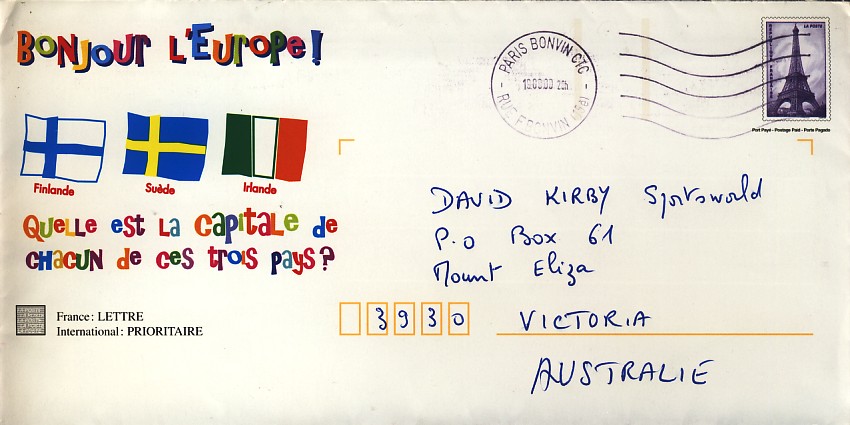 Bonjour l'Europe!
Finlande
Suède
Irlande
Quelle est la capitale de
chacun de ces trois pays?
France : LETTRE
International : PRIORITAIRE
PARIS BONVIN CTC
RUE F. BONVIN (15E)
LA POSTE
Port Payé - Postage Paid - Porte Pagado
DAVID KIRBY Sportsworld
P.O Box 61
Mount Eliza
3930 VICTORIA
AUSTRALIE